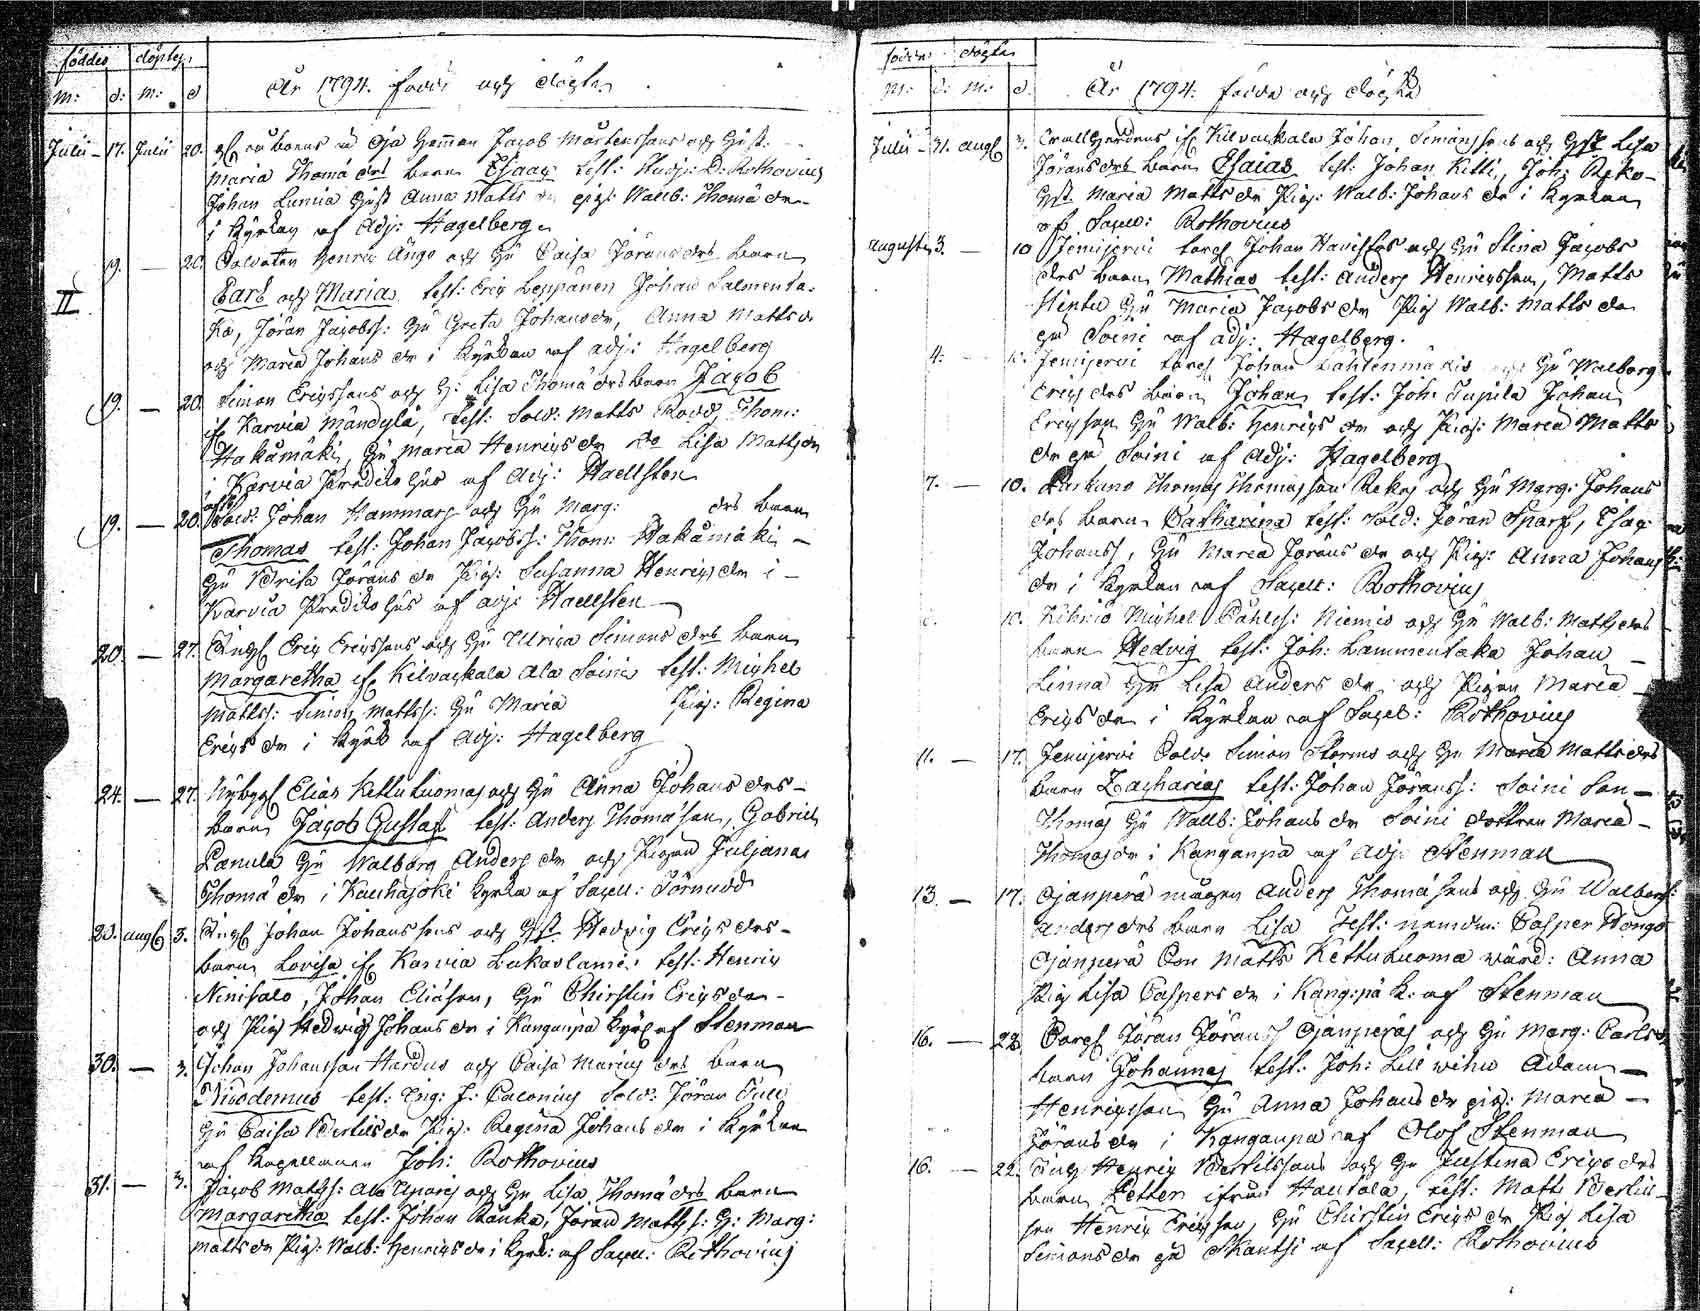 föddes döptes
m: d: m: d
År 1794. födde och döpte
Julii - 17. Julii 20. Jacob Mårtenssons och Hust:
Maria Thomä drs barn Esaac test: Studj: D: Rothovius
Johan Lunnia Hust Anna Matts dr pig: Walb: Thomä dr
i Kyrkan af Adj: Hagelberg
19. — 20. Soldaten Henric Ängs och Hu Caisa Jörans drs barn
II Carl och Maria. test: Eric Leppänen Johan Salmenta-
ka, Jöran Jacobss: Hu Greta Johans dr, Anna Matts dr
och Maria Johans dr i Kyrkan af adj: Hagelberg
19. — 20. Simon Ericssons och H: Lisa Thomä drs barn Jacob
if Karvia Mändylä, test: Sold: Matts Rodd, Thom:
Hakämäki, Hu Maria Henrics dr Do Lisa Matts dr
i Karvia Prediko Hus af Adj: Haellsten
19. — 20. Sold: Johan Hammars och Hu Marg: drs barn
Thomas test: Johan Jacobss: Thom: Hakämäki -
Hu Brita Jörans dr Pig: Susanna Henrics dr i -
Karvia Prediko Hus af adj: Haellsten
20. — 27. Eric Ericssons och Hu Ulrica Simons drs barn
Margaretha if Kilvackala Ala Soini test: Michel
Mattss: Simon Mattss: Hu Maria Pig: Regina
Erics dr i Kyrk af adj: Hagelberg
24. — 27. Nybygg Elias Kettu Luomas och Hu Anna Johans drs -
barn Jacob Gustaf test: Anders Thomä son, Gabriel
Panula Hu Walborg Anders dr och Pigan Juljana
Thomä dr i Kauhajoki Kyrka af Sacell: Törnudd
23. aug 3. Johan Johanssons och Hust Hedvig Erics drs -
barn Lovisa if Karvia Lukaslami: test: Henric
Ninisalo, Johan Eliäson, Hu Chirstin Erics dr -
och Pig Hedvig Johans dr i Kangaspä Kyrk af Stenman
30. — 3. Johan Johansson Hardus och Caisa Marius drs barn
Nicodemus test: Ing: J: Calonius Sold: Jöran Tull
Hu Caisa Bertils dr Pig: Regina Johans dr i Kyrkan
af Kapellanen Joh: Rothovius
31. — 3. Jacob Matss: Ala och Hu Lisa Thomä drs barn
Margaretha test: Johan Ranka, Jöran Matss: H: Marg:
Matts dr Pig: Walb: Henrics dr i Kyrk: af Sacell: Rothovius
födde döpte
m: d: m: d.
År 1794. födde och döpte
Julii - 31. aug 3. if Kilvackala Johan Simonssons och Hust Lisa
Jörans drs barn Esaias test: Johan Kitti, Joh: Reko-
Hust Maria Matts dr Pig: Walb: Johans dr i Kyrkan
af Sacell: Rothovius
augusti 3. — 10 Jemijervi torp Johan Havistos och Hu Stina Jacobs
drs barn Mathias test: Anders Henricsson, Matts
Hu Maria Jacobs dr Pig Walb: Matts dr
på Soini af adj: Hagelberg.
4. — Jemijervi torp Johan Lähtenmäkis och Hu Walborg
Erics drs barn Johan test: Joh: Tupila Johan
Ericsson Hu Walb: Henrics dr och Pig: Maria Matts
dr på Soini af Adj: Hagelberg
7. — 10. Thomas Thomasson Rekos och Hu Marg: Johans
drs barn Catharina test: Sold: Jöran Sparf, Esac
Johanss, Hu Maria Jörans dr och Pig: Anna Johans
dr i Kyrkan af Sacell: Rothovius
10. Kihniö Michel Påhlss: Niemis och Hu Walb: Matts drs
barn Hedvig test: Joh: Lammentaka Johan
Linna Hu Lisa Anders dr och Pigan Maria
Erics dr i Kyrkan af Sacel: Rothovius
11. — 17. Jemijervi Sold: Simon Storms och Hu Maria Matts drs
barn Zacharias test: Johan Jöranss: Soini Son -
Thomas Hu Wallb: Johans dr Soini dottren Maria -
Thomas dr i Kangaspä af Adj: Stenman
13. — 17. Ojanperä mågen Anders Thomä sons och Hu Walborg
Anders drs barn Lisa Test: nemdm: Casper Hongo
Ojanperä Son Matts Kettu Luoma wärd: Anna
Pig Lisa Caspers dr i Kang:pä k: af Stenman
16. — 22 Torp Jöran Jöranss Ojanperäs och Hu Marg: Carls d
barn Johannes test: Joh: Lill wihu Adam -
Henricsson Hu Anna Johans dr pig: Maria -
Jörans dr i Kangaspä af Olof Stenman
16. — 22. Henric Bertilssons och Hu Justina Erics drs
barn Petter ifrån Hautala, test: Matts Bertils-
son Henric Ericsson, Hu Chirstin Erics dr Pig Lisa
Simons dr på Skantsi af Sacell: Rothovius